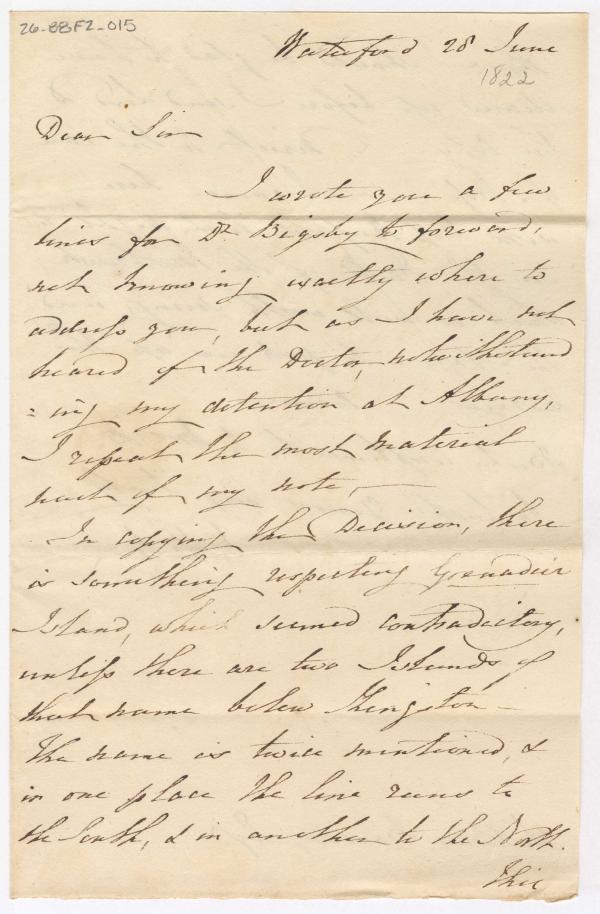 26-BBF2-015
Waterford 28 June
1822
Dear Sir
I wrote you a few
lines for Dr. Bigsby to forward,
not knowing exactly where to
address you, but as I have not
heared of the Doctor, notwithstand
=ing my detention at Albany,
I repeat the most material
part of my note,—
In copying the Decision, there
is something respecting Grenadier
Island, which seemed contradictory,
unless there are two Islands of
that name below Kingston—
The name is twice mentioned, &
in one place the line runs to
the South, & in another to the North.
This